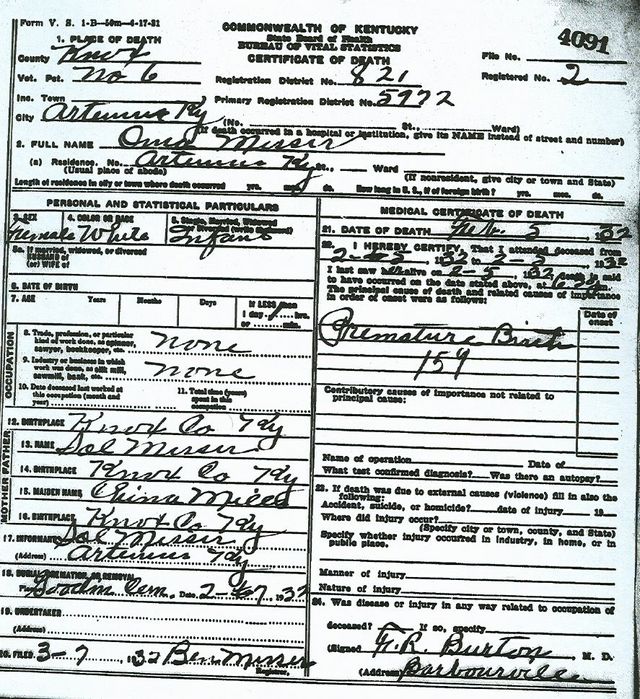 Form V. S. 1-B—50m—4-17-31
COMMONWEALTH OF KENTUCKY
State Board of Health
BUREAU OF VITAL STATISTICS
CERTIFICATE OF DEATH
4091
1. PLACE OF DEATH
County Knox
File No.
Vot. Pct. No 6
Registration District No. 821
Registered No. 2
Inc. Town
Primary Registration District No. 5972
City Artemus Ky
(No. St., Ward)
(If death occurred in a hospital or institution, give its NAME instead of street and number)
2. FULL NAME Oma Messer
(a) Residence. No. Artemus Ky St., Ward
(Usual place of abode) (If nonresident, give city or town and State)
Length of residence in city or town where death occurred yrs. mos. ds. How long in U. S., if of foreign birth? yrs. mos. ds.
PERSONAL AND STATISTICAL PARTICULARS
3. SEX 4. COLOR OR RACE 5. Single, Married, Widowed
or Divorced (write the word)
Female White Infant
5a. If married, widowed, or divorced
HUSBAND of
(or) WIFE of
6. DATE OF BIRTH
7. AGE Years Months Days If LESS than
1 day, 1 hrs.
or min.
OCCUPATION
8. Trade, profession, or particular
kind of work done, as spinner,
sawyer, bookkeeper, etc. None
9. Industry or business in which
work was done, as silk mill,
sawmill, bank, etc. None
10. Date deceased last worked at
this occupation (month and
year)
11. Total time (years)
spent in this
occupation
12. BIRTHPLACE Knox Co Ky
FATHER
13. NAME Sol Messer
14. BIRTHPLACE Knox Co Ky
MOTHER
15. MAIDEN NAME China Mills
16. BIRTHPLACE Knox Co Ky
17. INFORMANT Sol Messer
(Address) Artemus Ky
18. BURIAL, CREMATION, OR REMOVAL
Place Goodin Cem. Date 2- 7, 1932
19. UNDERTAKER
(Address)
20. FILED 3-7 1932 Ben Messer
Registrar.
MEDICAL CERTIFICATE OF DEATH
21. DATE OF DEATH Feb. 5, 1932
22. I HEREBY CERTIFY, That I attended deceased from
2-5, 1932 to 2-5, 1932
I last saw her alive on 2-5, 1932, death is said
to have occurred on the date stated above, at
The principal cause of death and related causes of importance
in order of onset were as follows:
Date of
onset
Premature Birth
159
Contributory causes of importance not related to
principal cause:
Name of operation Date of
What test confirmed diagnosis? Was there an autopsy?
23. If death was due to external causes (violence) fill in also the
following:
Accident, suicide, or homicide? date of injury 19
Where did injury occur?
(Specify city or town, county, and State)
Specify whether injury occurred in industry, in home, or in
public place.
Manner of injury
Nature of injury
24. Was disease or injury in any way related to occupation of
deceased? If so, specify
(Signed) G. R. Burton M. D.
(Address) Barbourville